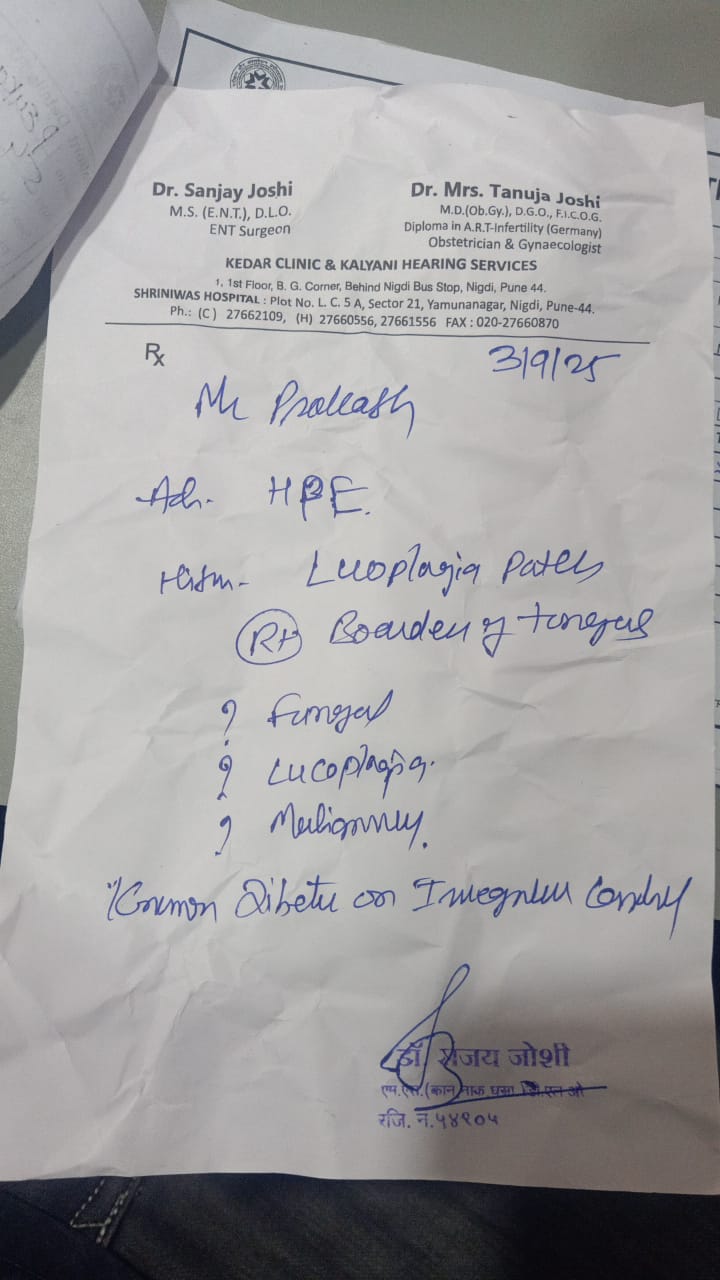 Dr. Sanjay Joshi
M.S. (E.N.T.), D.L.O.
ENT Surgeon
Dr. Mrs. Tanuja Joshi
M.D.(Ob.Gy.), D.G.O., F.I.C.O.G.
Diploma in A.R.T-Infertility (Germany)
Obstetrician & Gynaecologist
KEDAR CLINIC & KALYANI HEARING SERVICES
1, 1st Floor, B. G. Corner, Behind Nigdi Bus Stop, Nigdi, Pune 44.
SHRINIWAS HOSPITAL : Plot No. L. C. 5 A, Sector 21, Yamunanagar, Nigdi, Pune-44.
Ph.: (C) 27662109, (H) 27660556, 27661556 FAX : 020-27660870
Rx
3/9/25
Mr Prakash
Adv. HPE.
Lucoplagia Patch
Rt Boarder of tongue
? Fungal
? Lucoplagia.
? Malignancy.
Known Dibetic on Irregular
डॉ. संजय जोशी
एम.एस.(कान नाक घसा) डी.एल.ओ
रजि. नं.५४१०५